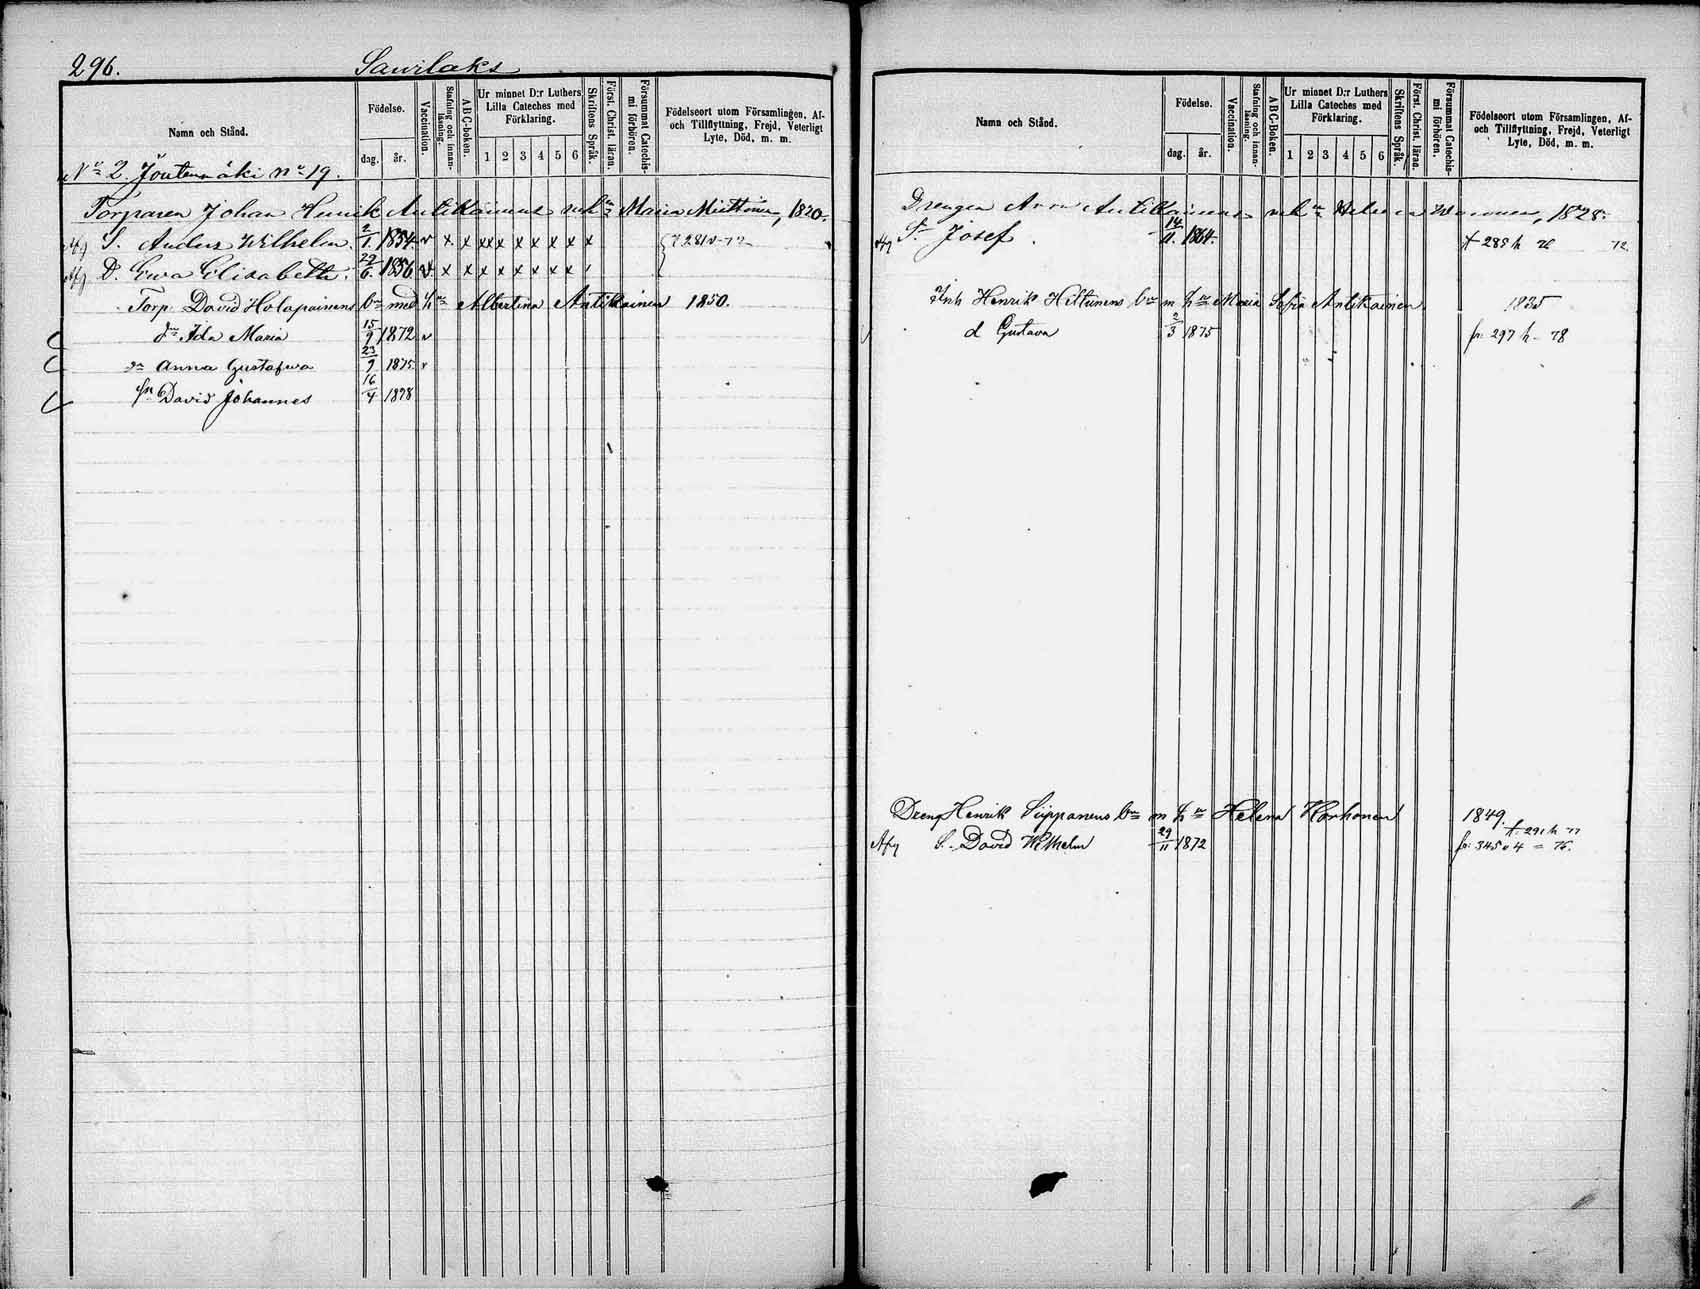 296. Sawilaks
Namn och Stånd.
Födelse.
dag. år.
Vaccination.
Stafning och innanläsning.
ABC-boken.
Ur minnet D:r Luthers Lilla Cateches med Förklaring.
1 2 3 4 5 6
Skriftens Språk.
Först. Christ. läran.
Försummat Catechismi förhören.
Födelseort utom Församlingen, Af- och Tillflyttning, Frejd, Veterligt Lyte, Död, m. m.
No 2. No 19.
Torparen Johan Henrik Antikainens och Maria Miettinen, 1820.
Afg S. Anders Wilhelm. 2/1. 1854. v x x xx x x x x x x
Afg D. Ewa Elisabeth. 29/6. 1856 v x x x x x x x x
Torp David Holopainens bn med hu Albertina Antikainen 1850.
dr Ida Maria 15/9 1872 v
dr Anna Gustafwa 23/9 1875 v
sn David Johannes 16/4 1878
Namn och Stånd.
Födelse.
dag. år.
Vaccination.
Stafning och innanläsning.
ABC-Boken.
Ur minnet D:r Luthers Lilla Cateches med Förklaring.
1 2 3 4 5 6
Skriftens Språk.
Först. Christ. läran.
Försummat Catechismi förhören.
Födelseort utom Församlingen, Af- och Tillflyttning, Frejd, Veterligt Lyte, Död, m. m.
Drengen Aron Antikainens och Helena 1828.
Afg Sn Josef. 14/11. 1864.
Inh Henrik Hiltunens bn m hu Maria Sofia Antikainen 1835
d Gustava 2/3 1875 fr 297 h - 78
Dreng Henrik Sippanens bn m hu Helena Korhonen 1849.
Afg S. David Wilhelm 29/11 1872